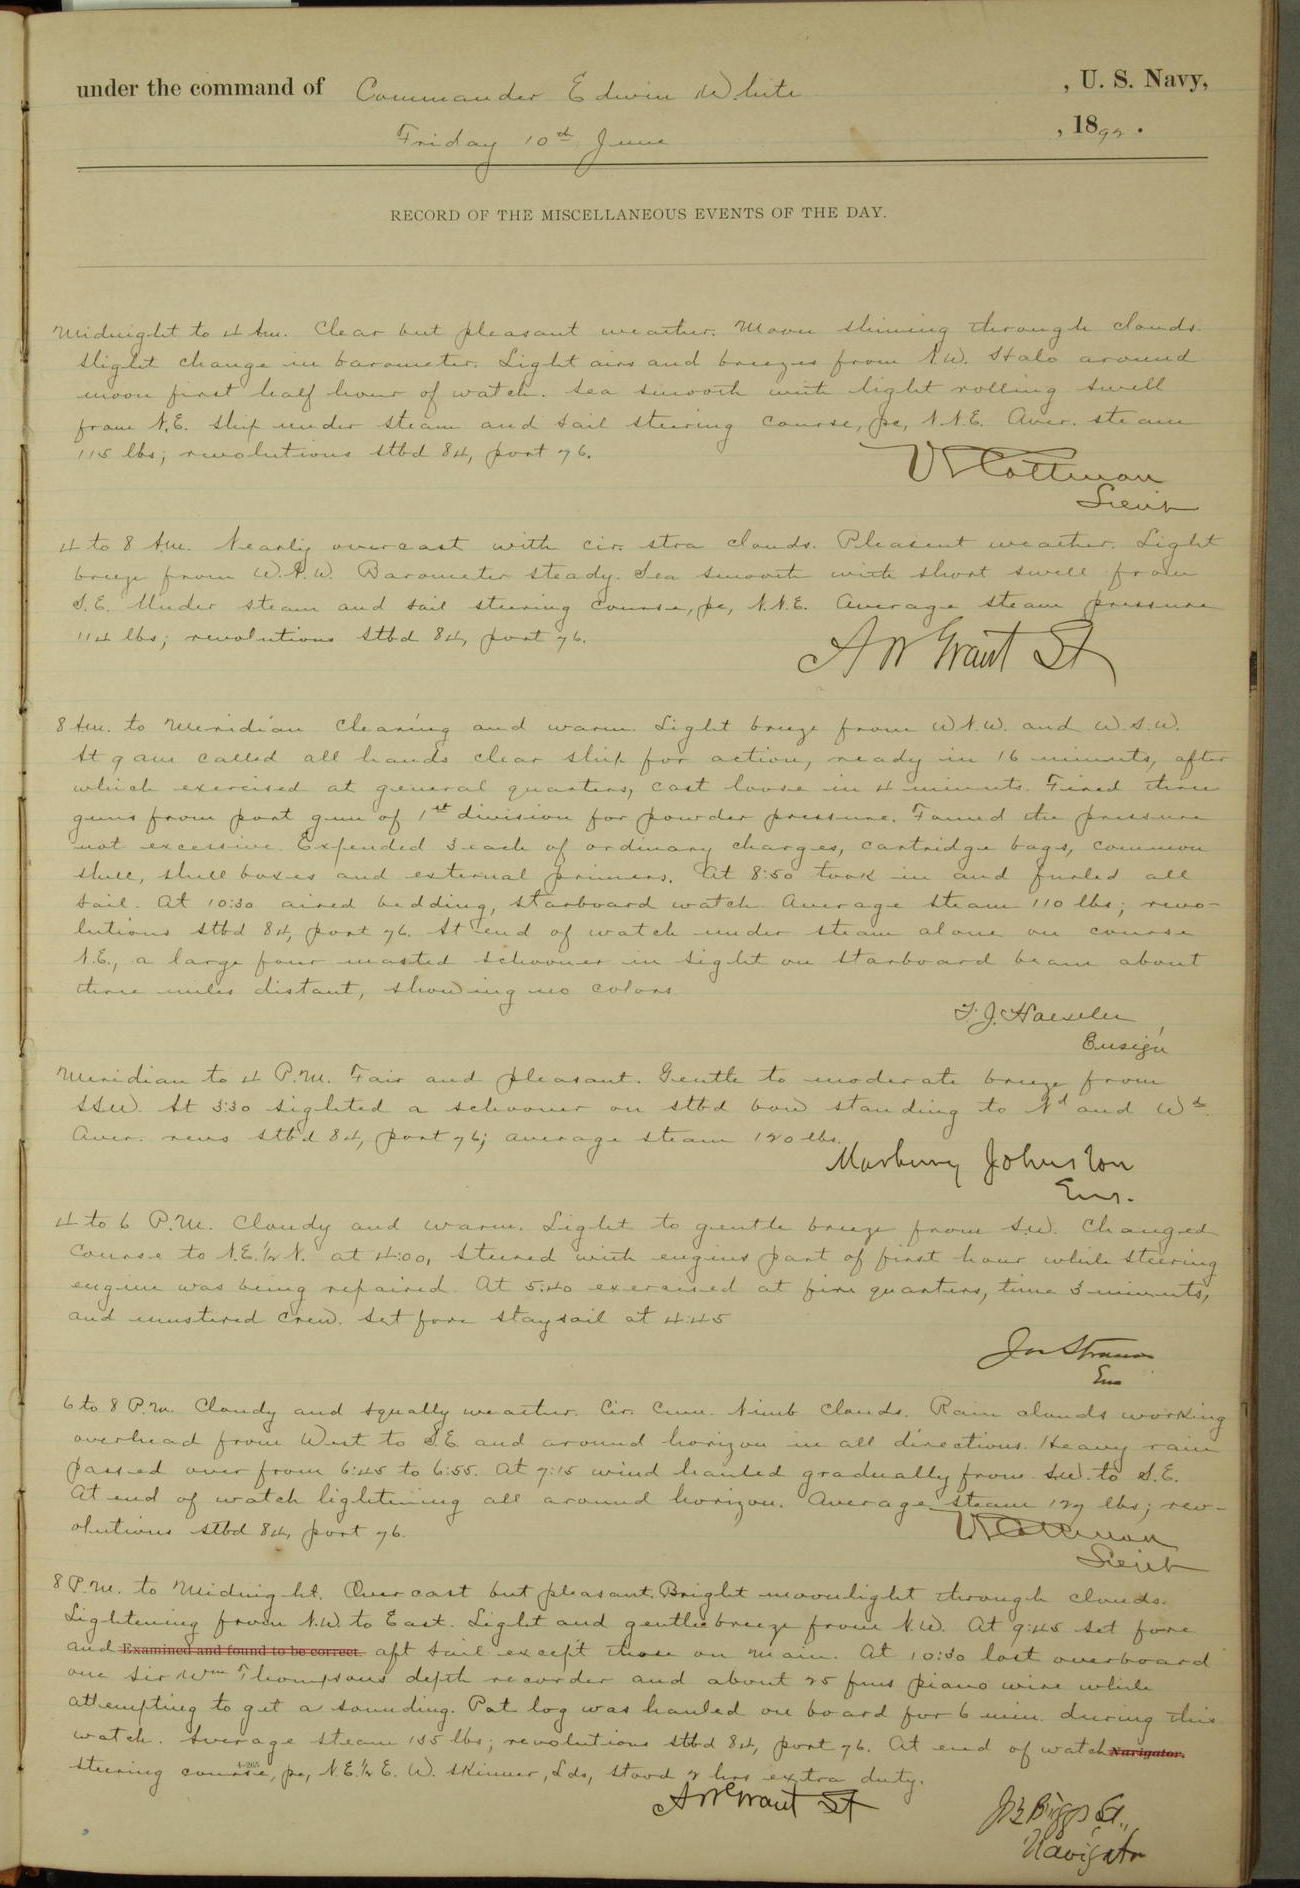 under the command of Commander Edwin White , U. S. Navy,
Friday 10th June , 1892.
RECORD OF THE MISCELLANEOUS EVENTS OF THE DAY.
Midnight to 4 Am. Clear but pleasant weather. Moon shining through clouds.
Slight change in barometer. Light airs and breezes from NW. Halo around
moon first half hour of watch. Sea smooth with light rolling swell
from N.E. Ship under steam and sail steering course, pc, N.N.E. Aver. steam
115 lbs; revolutions stbd 84, port 76.
V Cottman
Lieut
4 to 8 Am. Nearly overcast with cir. stra clouds. Pleasent weather. Light
breeze from W.N.W. Barometer steady. Sea smooth with short swell from
S.E. Under steam and sail steering course, pc, N.N.E. Average steam pressure
114 lbs; revolutions stbd 84, port 76.
A W Grant Lt
8 Am. to Meridian Clearing and warm. Light breeze from W.N.W. and W.S.W.
At 9 am called all hands clear ship for action, ready in 16 minuts, after
which exercised at general quarters, cast loose in 4 minuts. Fired three
guns from port gun of 1st division for powder pressure. Found the pressure
not excessive. Expended 3 each of ordinary charges, cartridge bags, common
shell, shell boxes and external primers. At 8:50 took in and furled all
sail. At 10:30 aired bedding, starboard watch. Average steam 110 lbs; revo-
lutions stbd 84, port 76. At end of watch under steam alone on course
N.E., a large four masted schooner in sight on starboard beam about
three miles distant, showing no colors.
F. J. Haeseler
Ensign
Meridian to 4 P.M. Fair and pleasant. Gentle to moderate breeze from
SSW. At 3:30 sighted a schooner on stbd bow standing to Nd and Wd.
Aver. revs stbd 84, port 76; average steam 120 lbs.
Marbury Johnston
Ens.
4 to 6 P.M. Cloudy and warm. Light to gentle breeze from S.W. Changed
course to N.E.½N. at 4:00, steered with engins part of first hour while steering
engine was being repaired. At 5:40 exercised at fire quarters, time 3 minuts,
and mustered crew. Set fore stay sail at 4:45
Jos Strauss
Ens
6 to 8 P.M. Cloudy and squally weather. Cir. Cum. Nimb clouds. Rain clouds working
overhead from West to S.E. and around horizon in all directions. Heavy rain
passed over from 6:45 to 6:55. At 7:15 wind hauled gradually from S.W. to S.E.
At end of watch lightening all around horizon. Average steam 127 lbs; rev-
olutions stbd 84, port 76.
V Cottman
Lieut
8 P.M. to Midnight. Overcast but pleasant. Bright moonlight through clouds.
Lightening from N.W. to East. Light and gentle breeze from N.W. At 9:45 set fore
and Examined and found to be correct. aft sail except those on main. At 10:30 lost overboard
one Sir Wm Thompsons depth recorder and about 25 fms piano wire while
attempting to get a sounding. Pat log was hauled on board for 6 min. during this
watch. Average steam 135 lbs; revolutions stbd 84, port 76. At end of watch Navigator.
4-265
steering course, pc, N.E.½E. W. Skinner, Lds, stood 2 hrs extra duty.
A W Grant Lt
J B Briggs Lt.,
Navigator